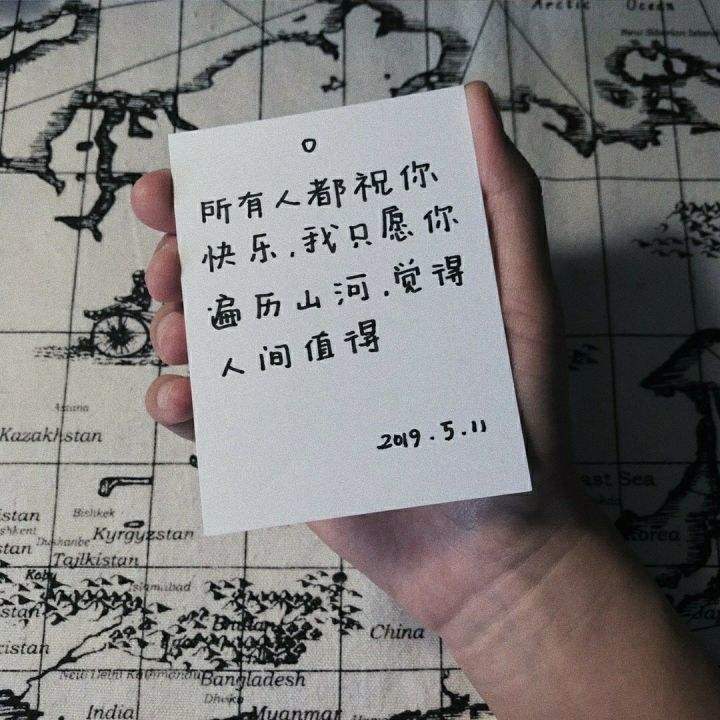 Arctic Ocean
New Siberian Islands
所有人都祝你
快乐，我只愿你
遍历山河，觉得
人间值得
2019.5.11
Astana
Kazakhstan
East Sea
Bishkek
Kyrgyzstan
Dushanbe
Tajlkistan
Islamabad
Korea
China
New Delhi Kathmandu
Bangladesh
Dhaka
India
Myanmar